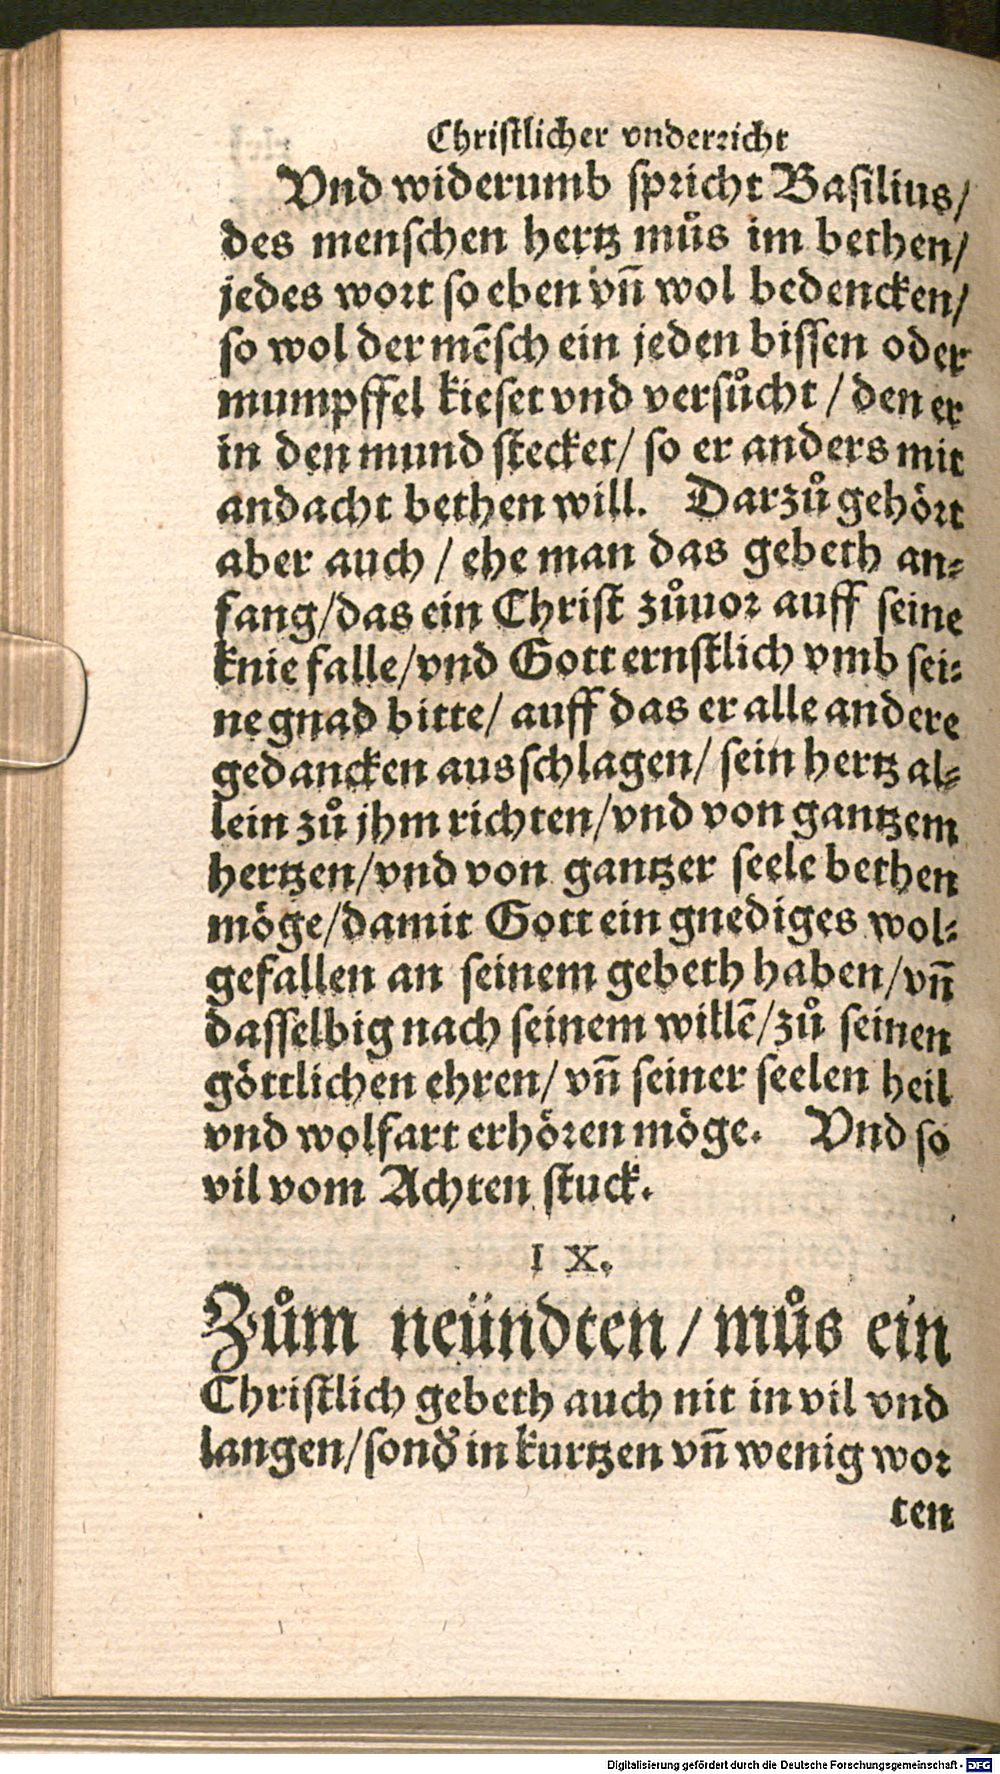 Christlicher vnderricht
Vnd widerumb spricht Basilius/
des menschen hertz muͦs im bethen/
jedes wort so eben vn̄ wol bedencken/
so wol der mēsch ein jeden bissen oder
mumpffel kieset vnd versuͦcht / den er
in den mund stecket/ so er anders mit
andacht bethen will. Darzuͦ gehört
aber auch / ehe man das gebeth an-
fang/das ein Christ zuͦuor auff seine
knie falle/vnd Gott ernstlich vmb sei-
ne gnad bitte/ auff das er alle andere
gedancken ausschlagen/ sein hertz al-
lein zuͦ jhm richten/vnd von gantzem
hertzen/vnd von gantzer seele bethen
möge/damit Gott ein gnediges wol-
gefallen an seinem gebeth haben/vn̄
dasselbig nach seinem willē/zuͦ seinen
göttlichen ehren/ vn̄ seiner seelen heil
vnd wolfart erhören möge. Vnd so
vil vom Achten stuck.
IX.
Zuͦm neündten/muͦs ein
Christlich gebeth auch nit in vil vnd
langen/sond̄ in kurtzen vn̄ wenig wor
ten
Digitalisierung gefördert durch die Deutsche Forschungsgemeinschaft - DFG